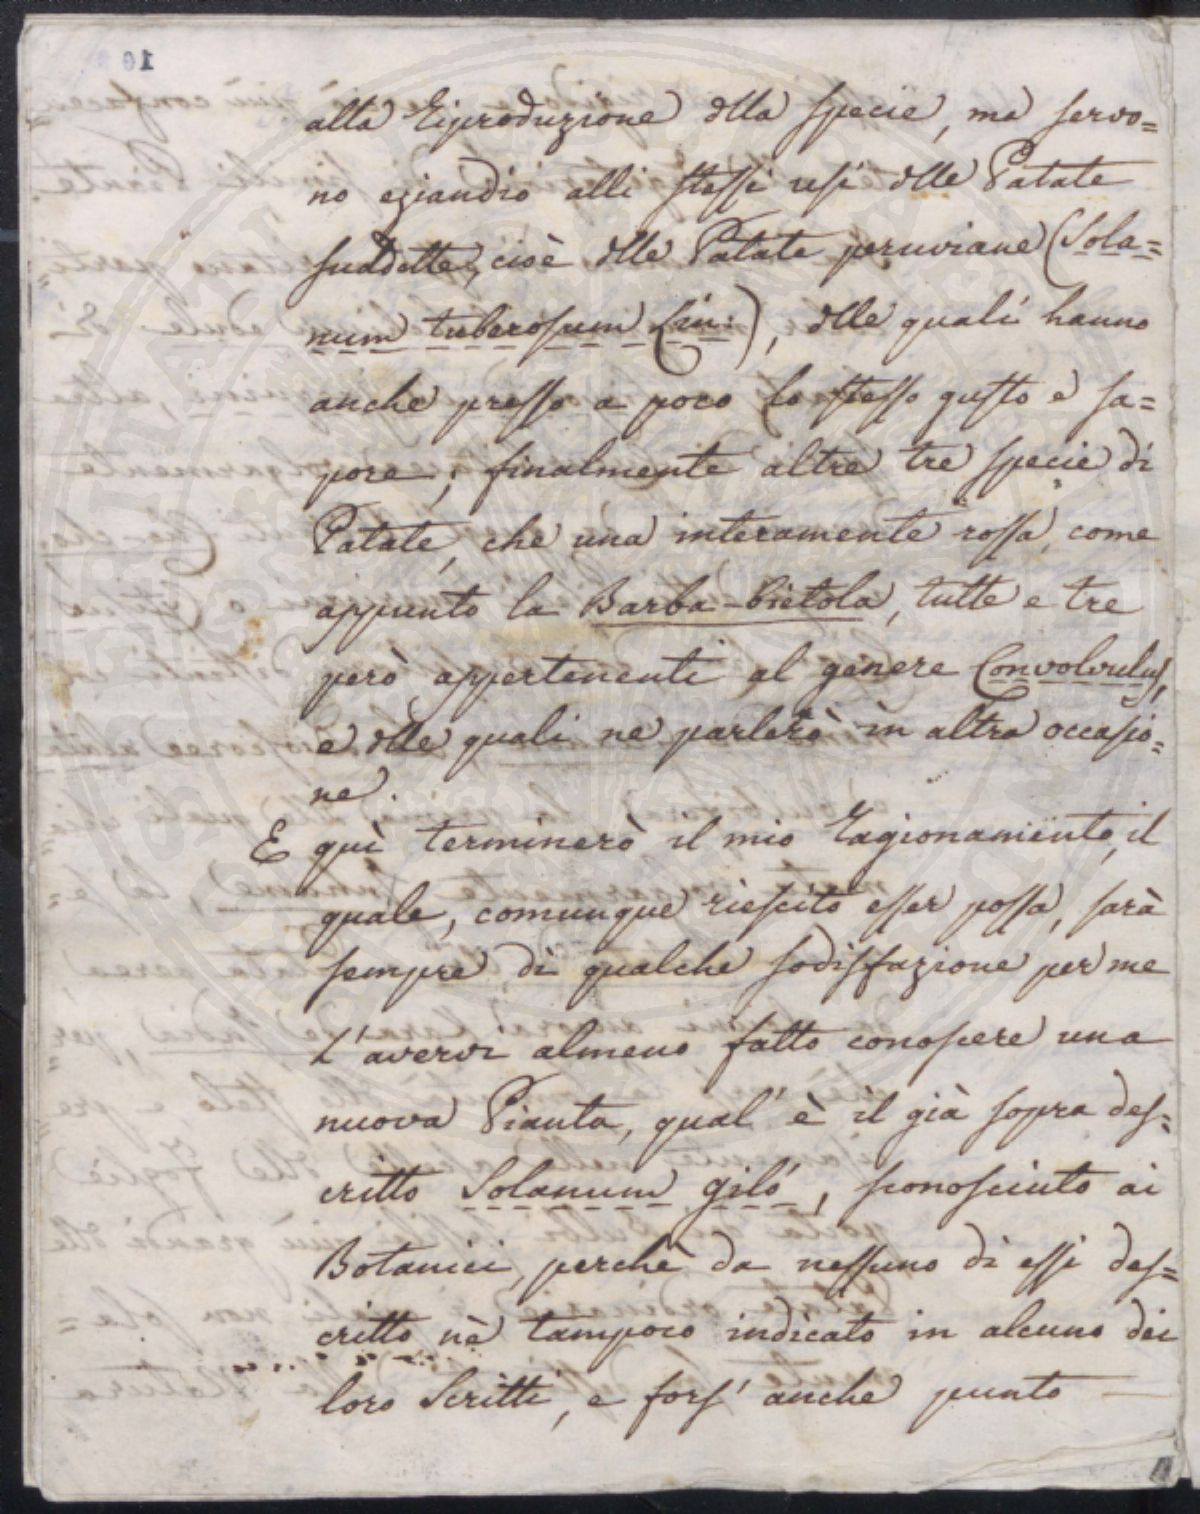 alla Riproduzione dlla specie, ma servo=
no eziandio alli stessi usi dlle Patate
suddette, cioè dlle Patate peruviane (Sola=
num tuberosum Lin:), dlle quali hanno
anche presso a poco lo stesso gusto e sa=
pore; finalmente altre tre specie di
Patate, che una interamente rossa, come
appunto la Barba-bietola, tutte e tre
però appertenenti al genere Convolvulus,
e dlle quali ne parlerò in altra occasio=
ne.
E quì terminerò il mio Ragionamento, il
quale, comunque riescito esser possa, sarà
sempre di qualche sodisfazione per me
L'avervi almeno fatto conoscere una
nuova Pianta, qual' è il già sopra des=
critto Solanum giló, sconosciuto ai
Botanici, perchè da nessuno di essi des=
critto nè tampoco indicato in alcuno dei
loro Scritti, e fors' anche punto